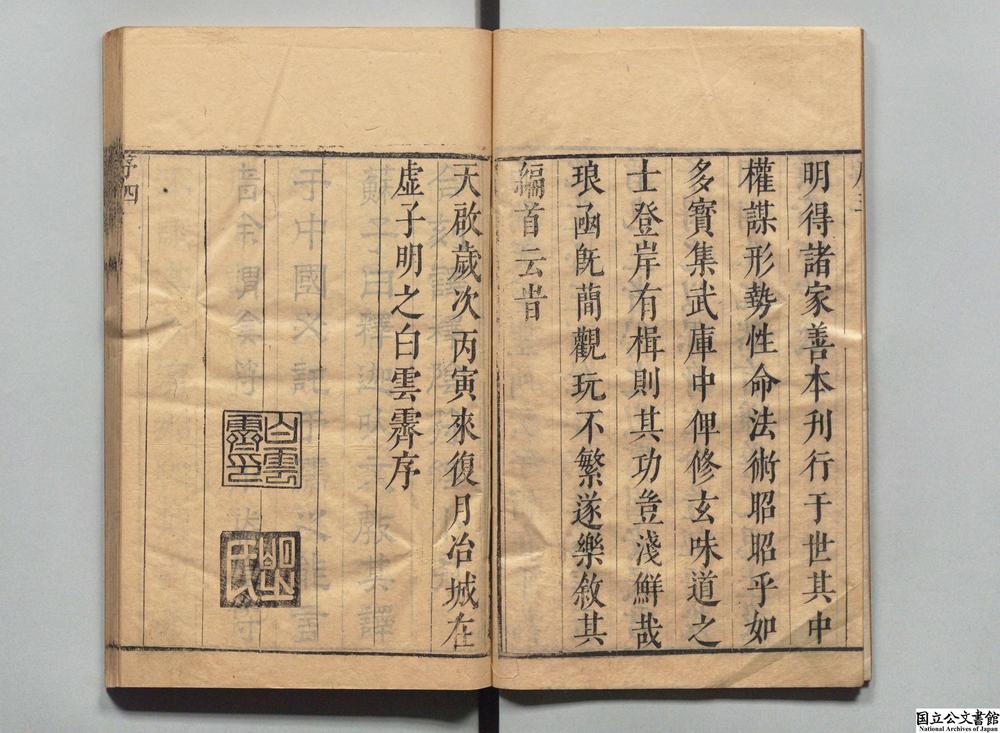 明得諸家善本刊行于世其中
權謀形勢性命法術昭昭乎如
多寳集武庫中俾修玄味道之
士登岸有楫則其功豈淺鮮哉
琅函旣蕳觀玩不繁遂樂敘其
編首云旹
天啟歲次丙寅來復月冶城在
虛子明之白雲霽序
白雲
霽印
明之
氏
序四
国立公文書館
National Archives of Japan